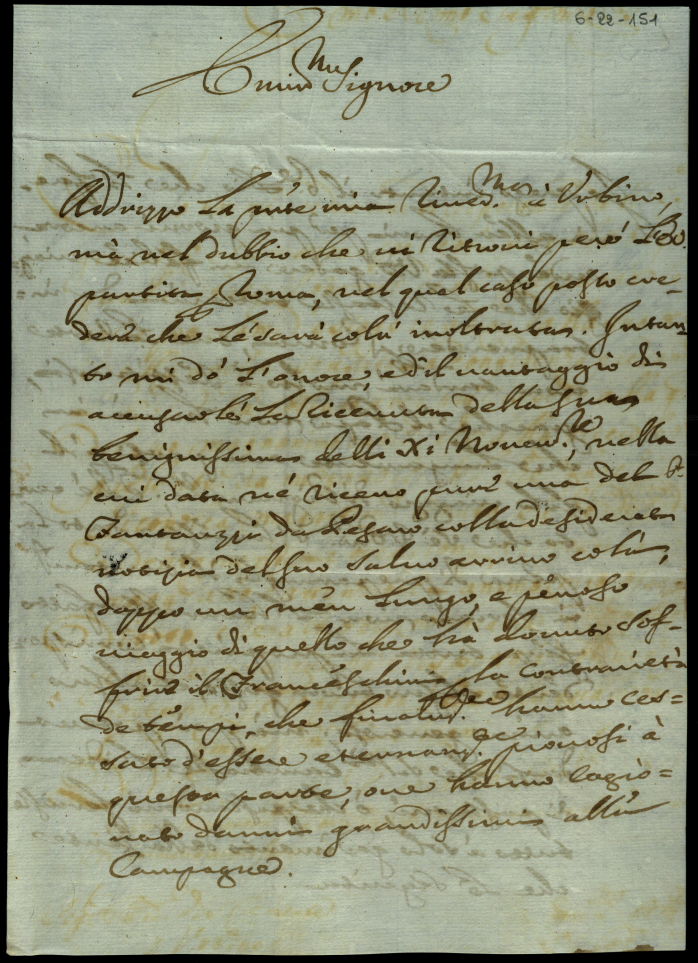 6-22-151
Emin.mo Signore
Addrizzo La pnte mia River.ma à Urbino,
mà nel dubbio che ne ritrovi però
partita Roma, nel qual caso posto cre=
derà che Le sarà colà inoltrata. Intan=
to mi dò L'onore, e di il vantaggio di
La Ricevuta della sua
benignissima delli Xi Novem.re, nella
cui data né ricevo pure una del P.
Fantuzzi da Pesaro colla desiderata
notizia del suo salvo arrivo colà,
doppo un men Lungo, e penoso
viaggio di quello che hà dovuto sof=
frire il Franceschini, la contrarietà
de tempi, che finalm.te hanno ces=
sato d'essere eternam.te piovosi à
questa parte, ove hanno cagio=
nato danni grandissimi alle
Campagne.